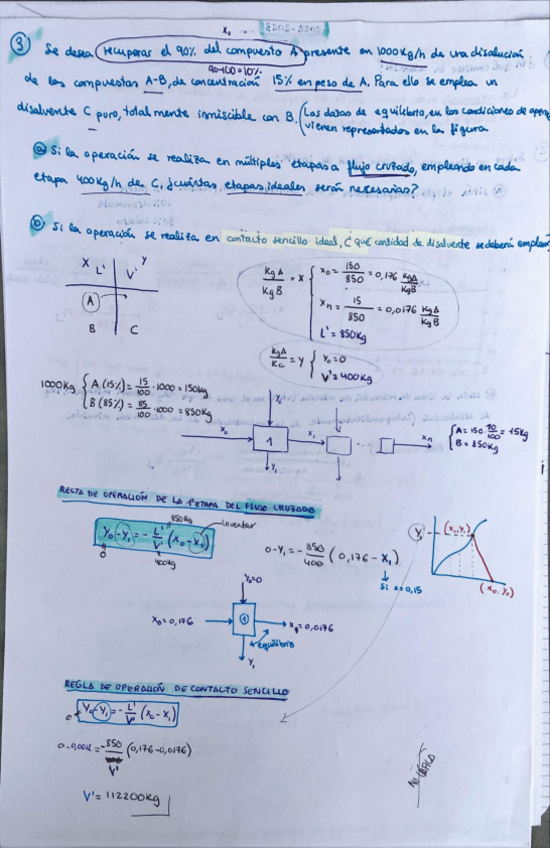 x₀
③ Se desea recuperar el 90% del compuesto A presente en 1000Kg/h de una disolución
90-100=10%
de los compuestos A-B, de concentración 15% en peso de A. Para ello se emplea un
disolvente C puro, totalmente inmiscible con B. (Los datos de equilibrio, en las condiciones de oper
vienen representados en la figura
ⓐ Si la operación se realiza en múltiples etapas a flujo cruzado, empleando en cada
etapa 400Kg/h de C, ¿cuántas etapas ideales serán necesarias?
ⓑ Si la operación se realiza en contacto sencillo ideal, ¿qué cantidad de disolvente se deberá emplear
X L' V' Y
A
B C
KgA/KgB = X { X₀ = 150/850 = 0,176 KgA/KgB
Xn = 15/850 = 0,0176 KgA/KgB
L' = 850Kg
KgA/Kc = Y { Y₀=0
V'=400Kg
1000Kg { A (15%) = 15/100 · 1000 = 150Kg
B (85%) = 85/100 · 1000 = 850Kg
Y₀
X₀ 1 X₁ Xn
Y₁
{ A = 150 · 10/100 = 15Kg
B = 850Kg
RECTA DE OPERACIÓN DE LA 1ª ETAPA DEL FLUJO CRUZADO
850Kg
inventar
Y₀-Y₁ = - L'/V' (X₀-X₁)
0
400Kg
0-Y₁ = - 850/400 (0,176 - X₁)
Si x=0,15
Y₁
(X₁,Y₁)
(X₀,Y₀)
Y₀=0
X₀=0,176 ① X₁=0,0176
equilibrio
Y₁
REGLA DE OPERACIÓN DE CONTACTO SENCILLO
0 Y₀-Y₁ = - L'/V' (X₀-X₁)
V'
V' = 112200Kg